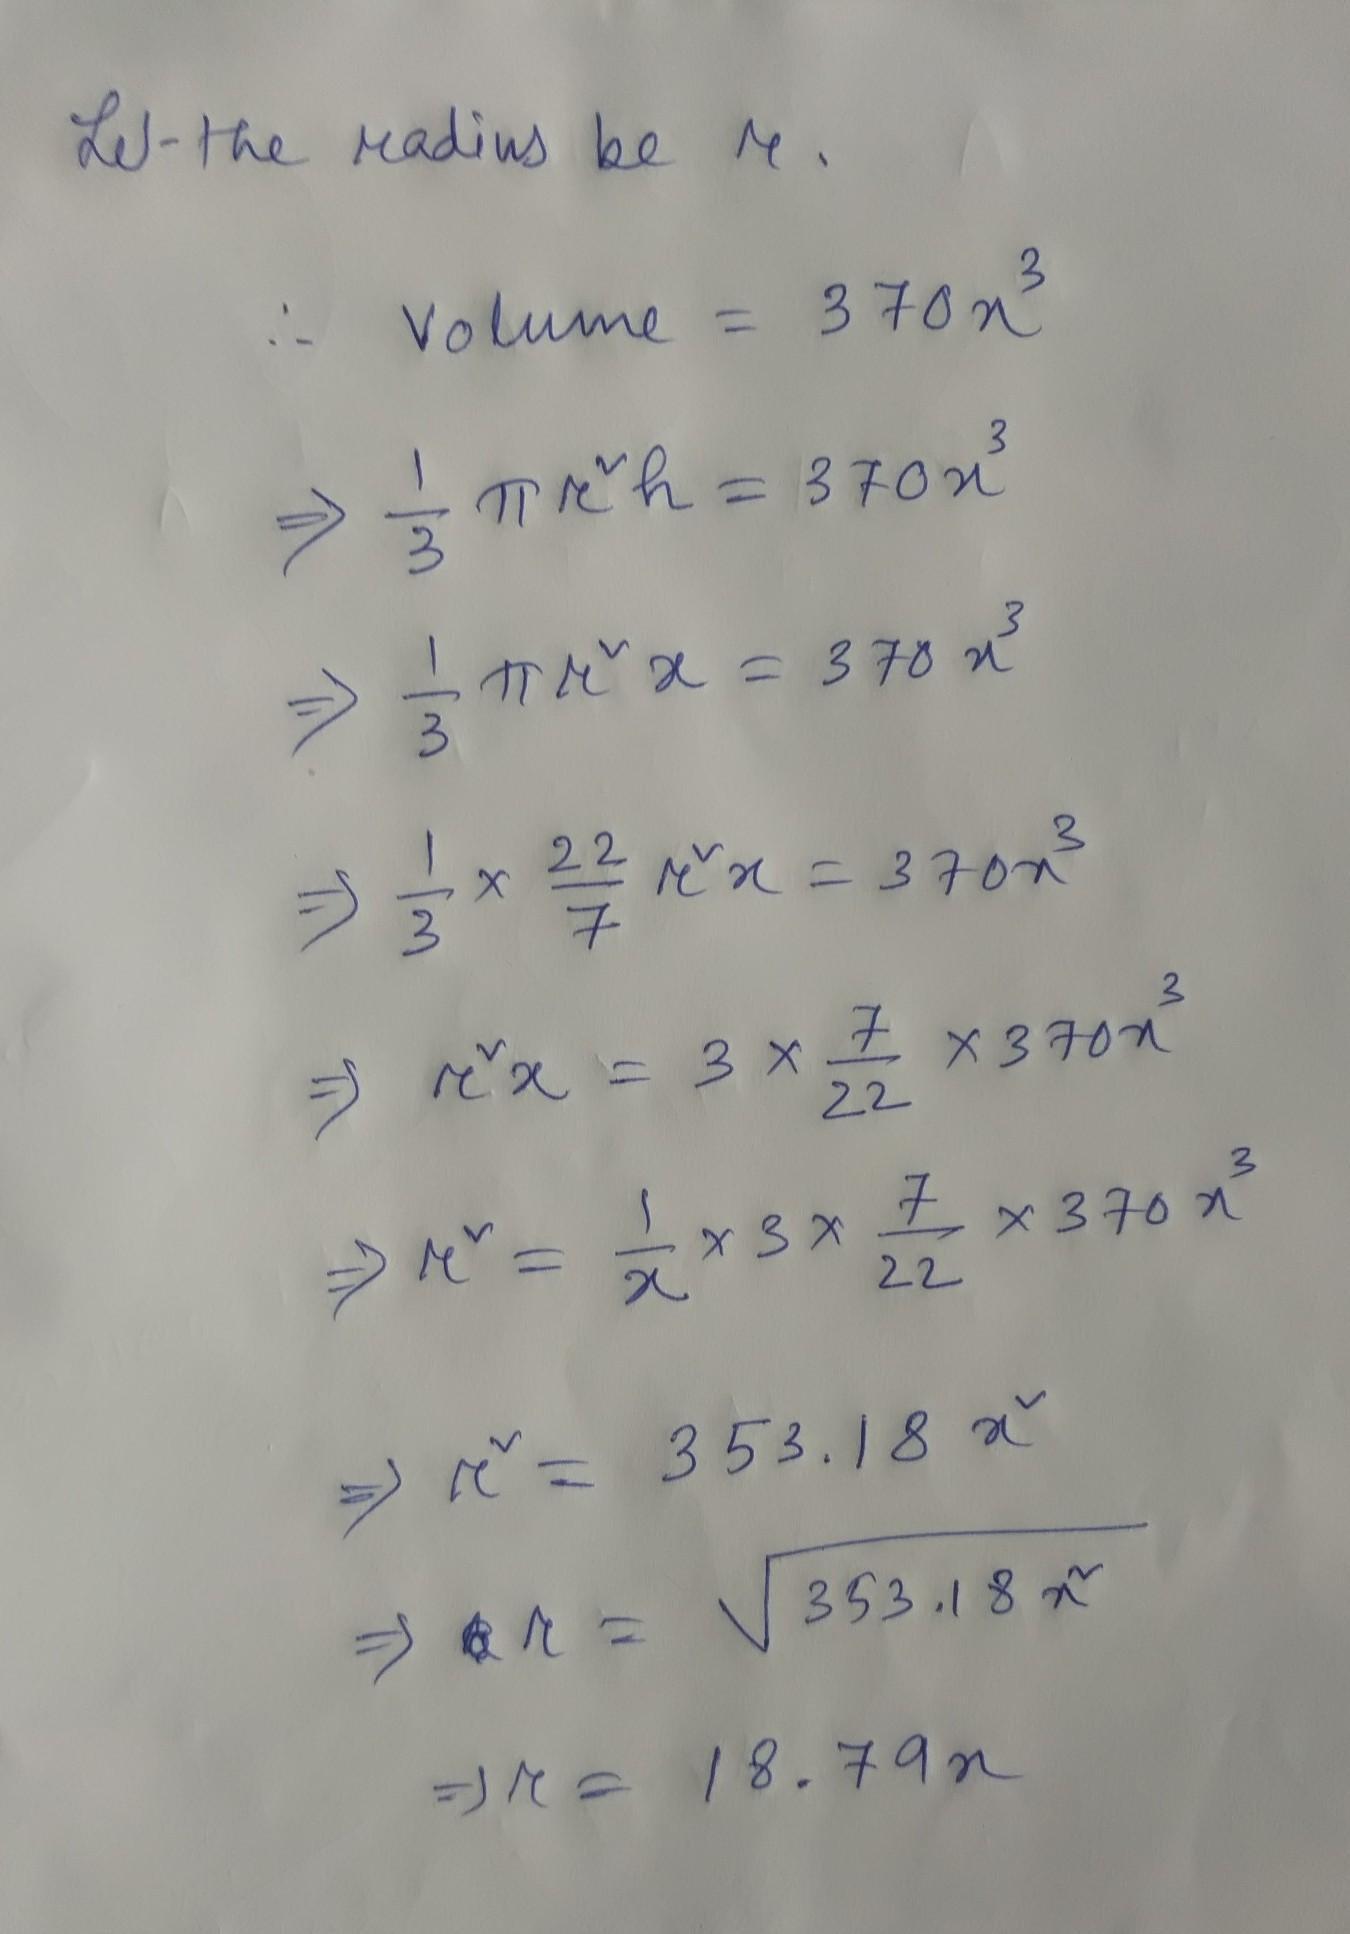 Let the radius be r.
∴ Volume = 370x³
⇒ 1/3 πr²h = 370x³
⇒ 1/3 πr²x = 370x³
⇒ 1/3 × 22/7 r²x = 370x³
⇒ r²x = 3 × 7/22 × 370x³
⇒ r² = 1/x × 3 × 7/22 × 370x³
⇒ r² = 353.18 x²
⇒ r = √353.18x²
⇒ r = 18.79x